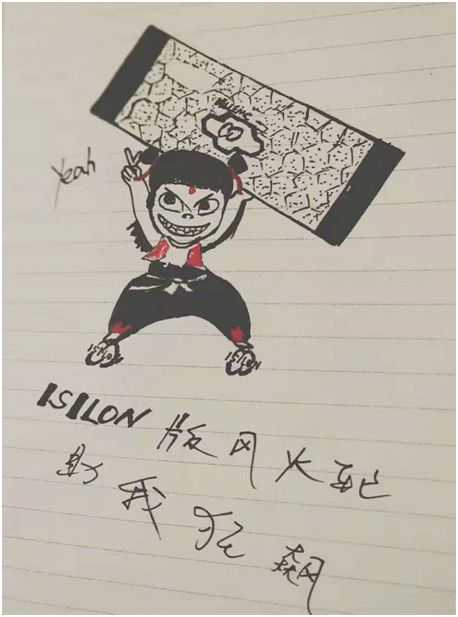 Yeah
ISILON 版风火轮
助我狂飙